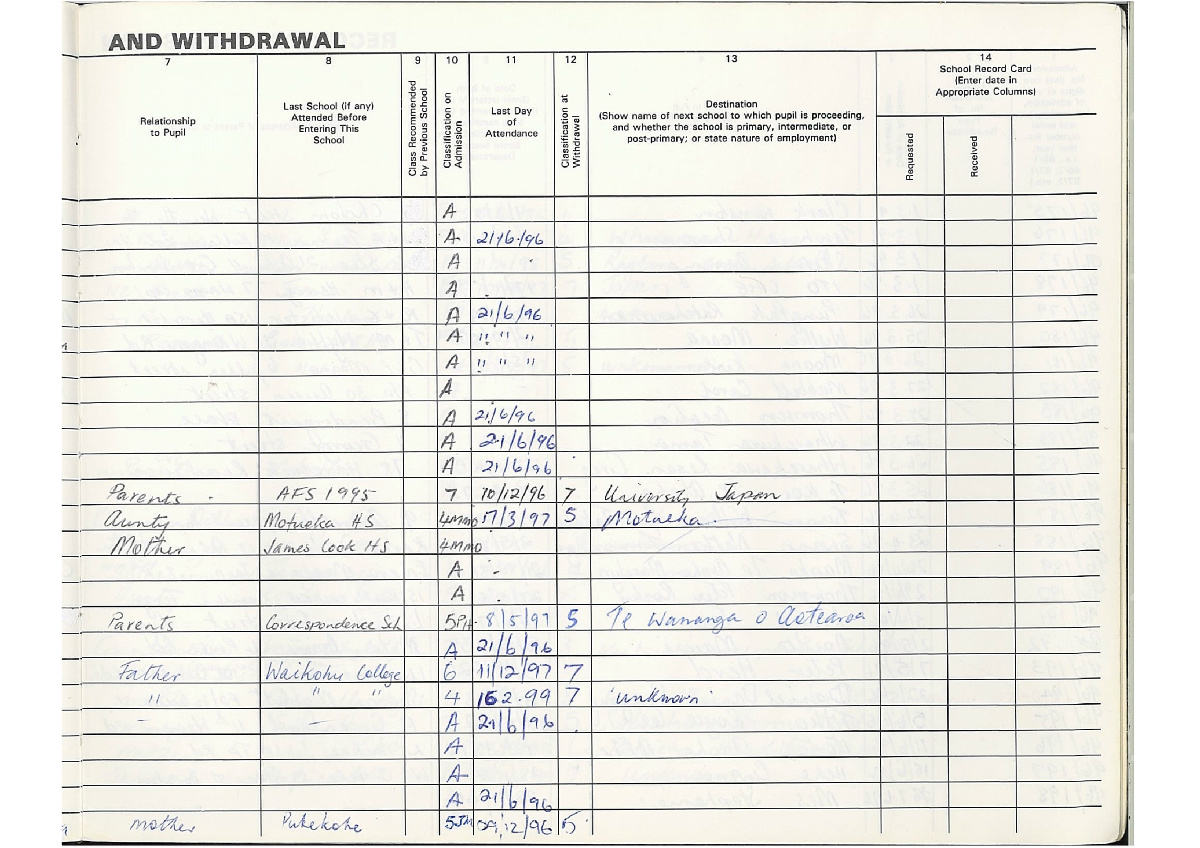 AND WITHDRAWAL
7 8 9 10 11 12 13 14
Relationship
to Pupil
Last School (if any)
Attended Before
Entering This
School
Class Recommended
by Previous School
Classification on
Admission
Last Day
of
Attendance
Classification at
Withdrawal
Destination
(Show name of next school to which pupil is proceeding,
and whether the school is primary, intermediate, or
post-primary; or state nature of employment)
School Record Card
(Enter date in
Appropriate Columns)
Requested
Received
A
A 21/6/96
A
A
A 21/6/96
A " " "
A " " "
A
A 21/6/96
A 21/6/96
A 21/6/96
Parents AFS 1995 7 10/12/96 7 University Japan
Aunty Motueka HS 4Mmo 17/3/97 5 Motueka
Mother James Cook HS 4Mmo
A
A
Parents Correspondence Sch 5PH 8/5/97 5 Te Wananga o Aotearoa
A 21/6/96
Father Waikohu College 6 11/12/97 7
" " " 4 162.99 7 'unknown'
– – A 21/6/96
A
A
A 21/6/96
mother Pukekohe 09/12/96 5